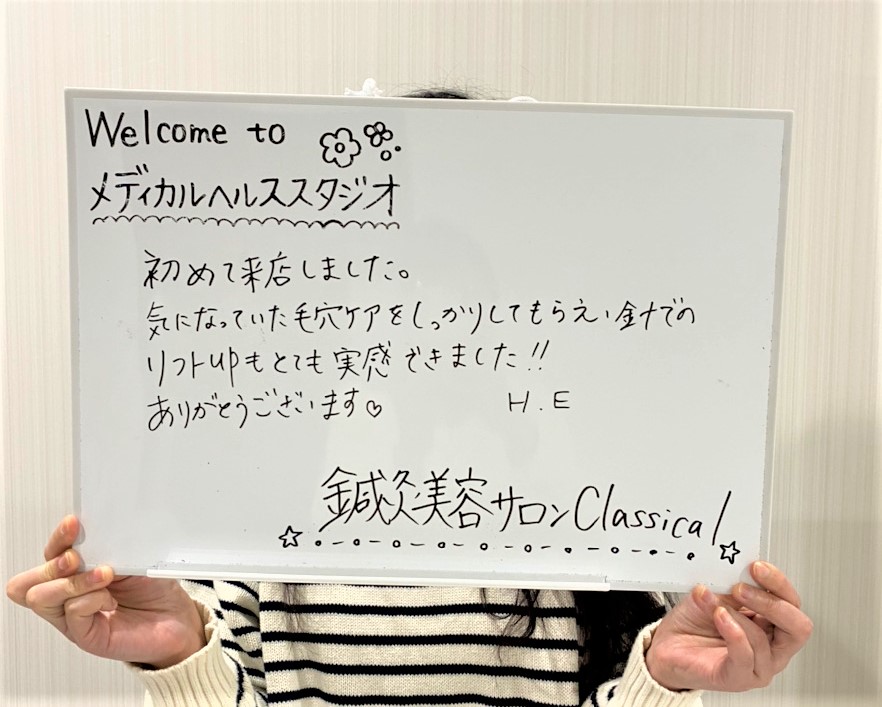 Welcome to
メディカルヘルススタジオ
初めて来店しました。
気になっていた毛穴ケアをしっかりしてもらえ、針での
リフトupもとても実感できました!!
ありがとうございます♡ H.E
鍼灸美容サロンClassical